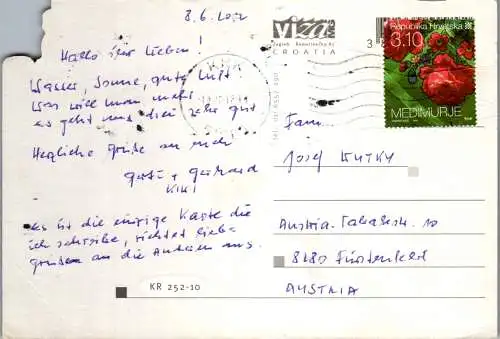 8.6.2012
Hallo ihr Lieben!
Wasser, Sonne, gute Luft
Was will man mehr
es geht uns hier sehr gut
Herzliche Grüße an euch
Gusti + Gerhard
KIKI
es ist die einzige Karte die
ich schreibe, richtet liebe
Grüße an die Anderen aus.
KR 252-10
viza
Zagreb
CROATIA
Republika Hrvatska
3.10
MEĐIMURJE
Fam.
Josef
Austria-Tabakstr. 10
8280 Fürstenfeld
AUSTRIA